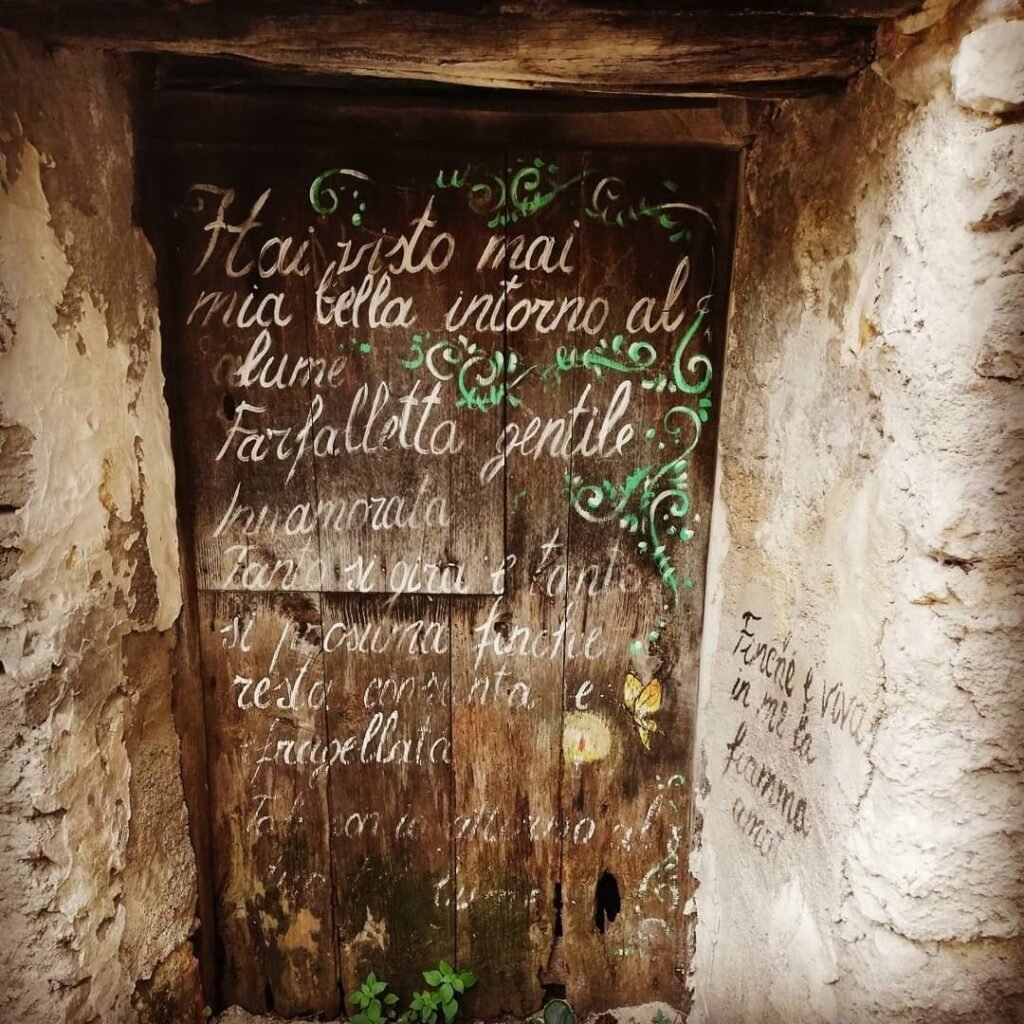 Hai visto mai
mia bella intorno al
lume
Farfalletta gentile
Innamorata
Tanto si gira e tante
si prosima finche
resta consunta e
fragellata
Tale son io attorno al
lume
Finche è viva
in me la
fiamma
amo